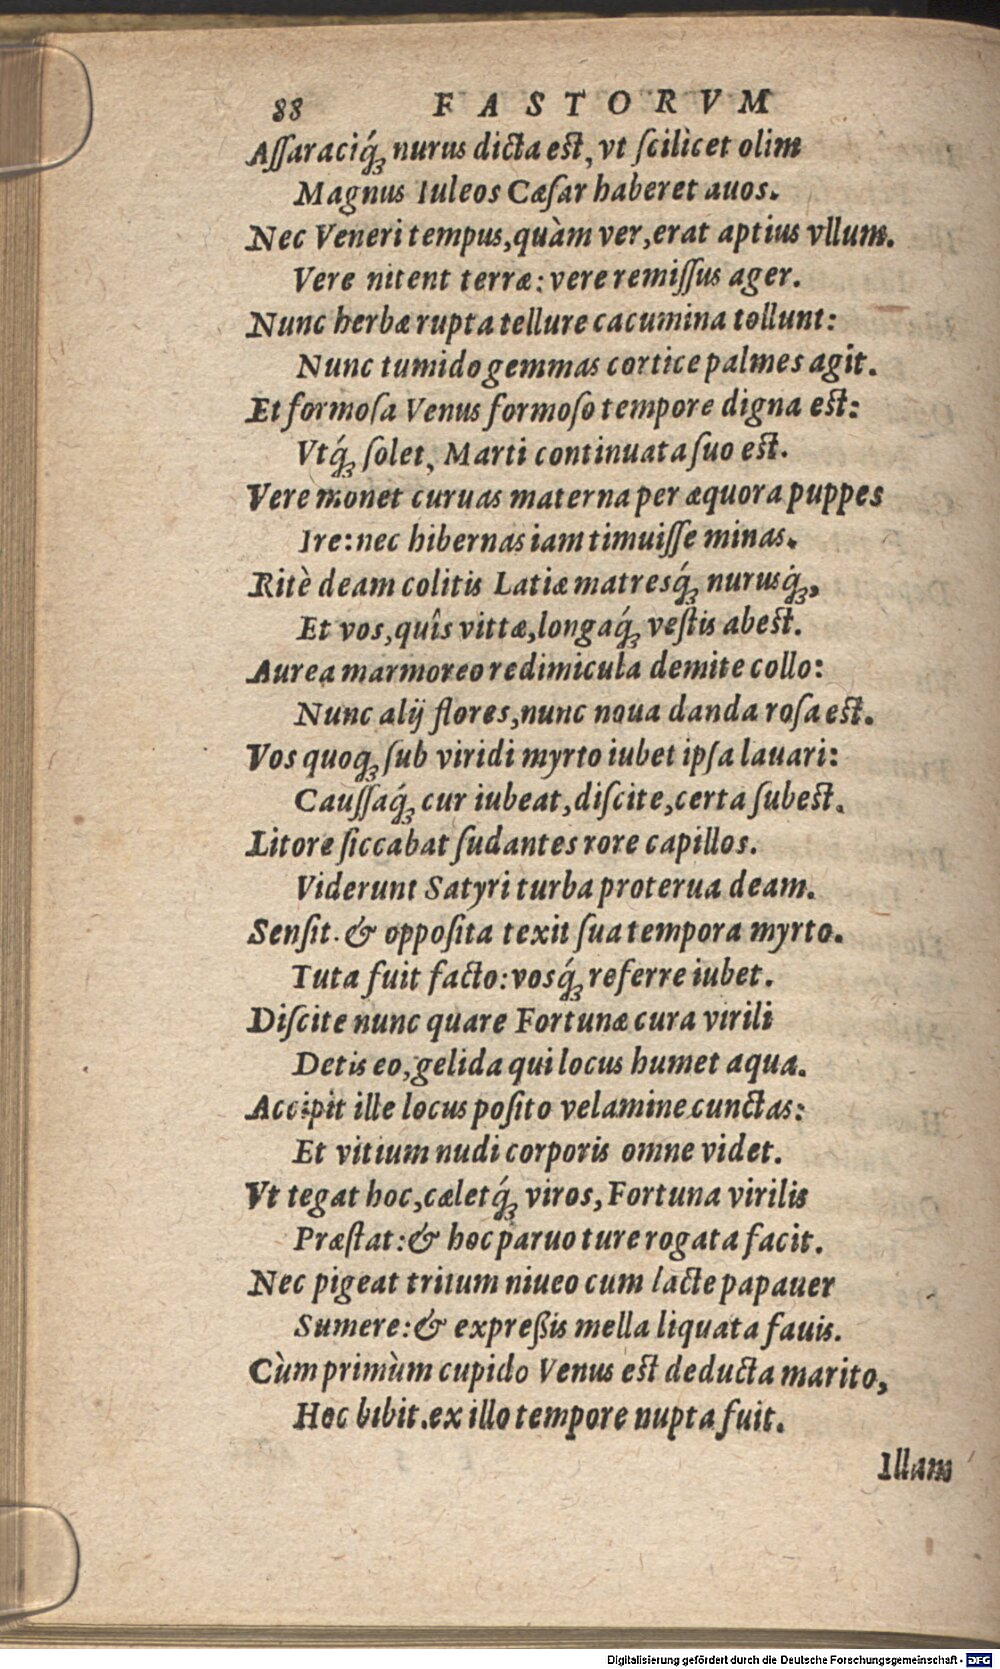 88 FASTORVM
Aſſaraciq́ꝫ nurus dicta est, vt ſcilicet olim
Magnus Iuleos Cæſar haberet auos.
Nec Veneri tempus, quàm ver, erat aptius vllum.
Vere nitent terræ: vere remiſſus ager.
Nunc herbæ rupta tellure cacumina tollunt:
Nunc tumido gemmas cortice palmes agit.
Et formoſa Venus formoſo tempore digna est:
Vtq́ꝫ ſolet, Marti continuata ſuo est.
Vere monet curuas materna per æquora puppes
Ire: nec hibernas iam timuiſſe minas.
Ritè deam colitis Latiæ matresq́ꝫ nurusq́ꝫ,
Et vos, quîs vittæ, longaq́ꝫ veſtis abest.
Aurea marmoreo redimicula demite collo:
Nunc alij flores, nunc noua danda roſa est.
Vos quoqꝫ ſub viridi myrto iubet ipſa lauari:
Cauſſaq́ꝫ cur iubeat, diſcite, certa ſubest.
Litore ſiccabat ſudantes rore capillos.
Viderunt Satyri turba proterua deam.
Senſit. & oppoſita texit ſua tempora myrto.
Tuta fuit facto: vosq́ꝫ referre iubet.
Diſcite nunc quare Fortunæ cura virili
Detis eo, gelida qui locus humet aqua.
Accipit ille locus poſito velamine cunctas:
Et vitium nudi corporis omne videt.
Vt tegat hoc, cæletq́ꝫ viros, Fortuna virilis
Præſtat: & hoc paruo ture rogata facit.
Nec pigeat tritum niueo cum lacte papauer
Sumere: & expreßis mella liquata fauis.
Cùm primùm cupido Venus est deducta marito,
Hoc bibit. ex illo tempore nupta fuit.
Illam
Digitalisierung gefördert durch die Deutsche Forschungsgemeinschaft - DFG